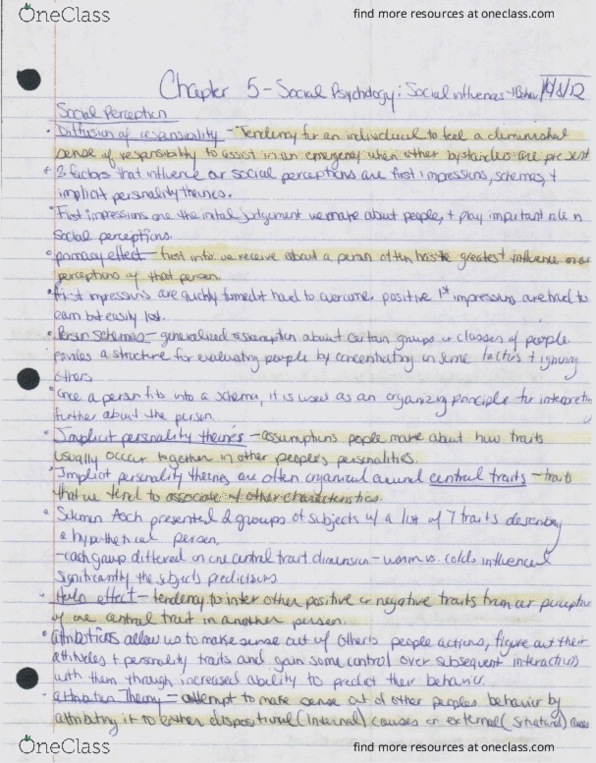 OneClass
find more resources at oneclass.com
Chapter 5 - Social Psychology: Social influences + Behav 10/8/12
Social Perception
• Diffusion of responsibility - Tendency for an individual to feel a diminished
sense of responsibility to assist in an emergency when other bystanders are present
• 3 factors that influence our social perceptions are first impressions, schemas, +
implicit personality theories.
• First impressions are the initial judgement we make about people, + play important role in
social perceptions.
• primacy effect - first info we receive about a person often has the greatest influence over
perceptions of that person.
• First impressions are quickly formed + hard to overcome. positive 1st impressions are hard to
earn but easily lost.
• Person schemas - generalized assumption about certain groups or classes of people
provides a structure for evaluating people by concentrating on some factors + ignoring
others
• Once a person fits into a schema, it is used as an organizing principle for interpreting
further about the person.
• Implicit personality theories - assumptions people make about how traits
usually occur together in other people's personalities.
• Implicit personality theories are often organized around central traits - traits
that we tend to associate w/ other characteristics.
• Asch presented 2 groups of subjects w/ a list of 7 traits describing
a hypothetical person.
- each group differed on one central trait dimension - warm vs. cold, influenced
significantly the subjects predictions
• Halo effect - tendency to infer other positive or negative traits from our perception
of one central trait in another person.
• attributions allow us to make sense out of others people actions, figure out their
attitudes + personality traits and gain some control over subsequent interactions
with them through increased ability to predict their behavior.
• attribution Theory - attempt to make sense out of other peoples behavior by
attributing it to either dispositional (internal) causes or external (situational) causes
OneClass
find more resources at oneclass.com